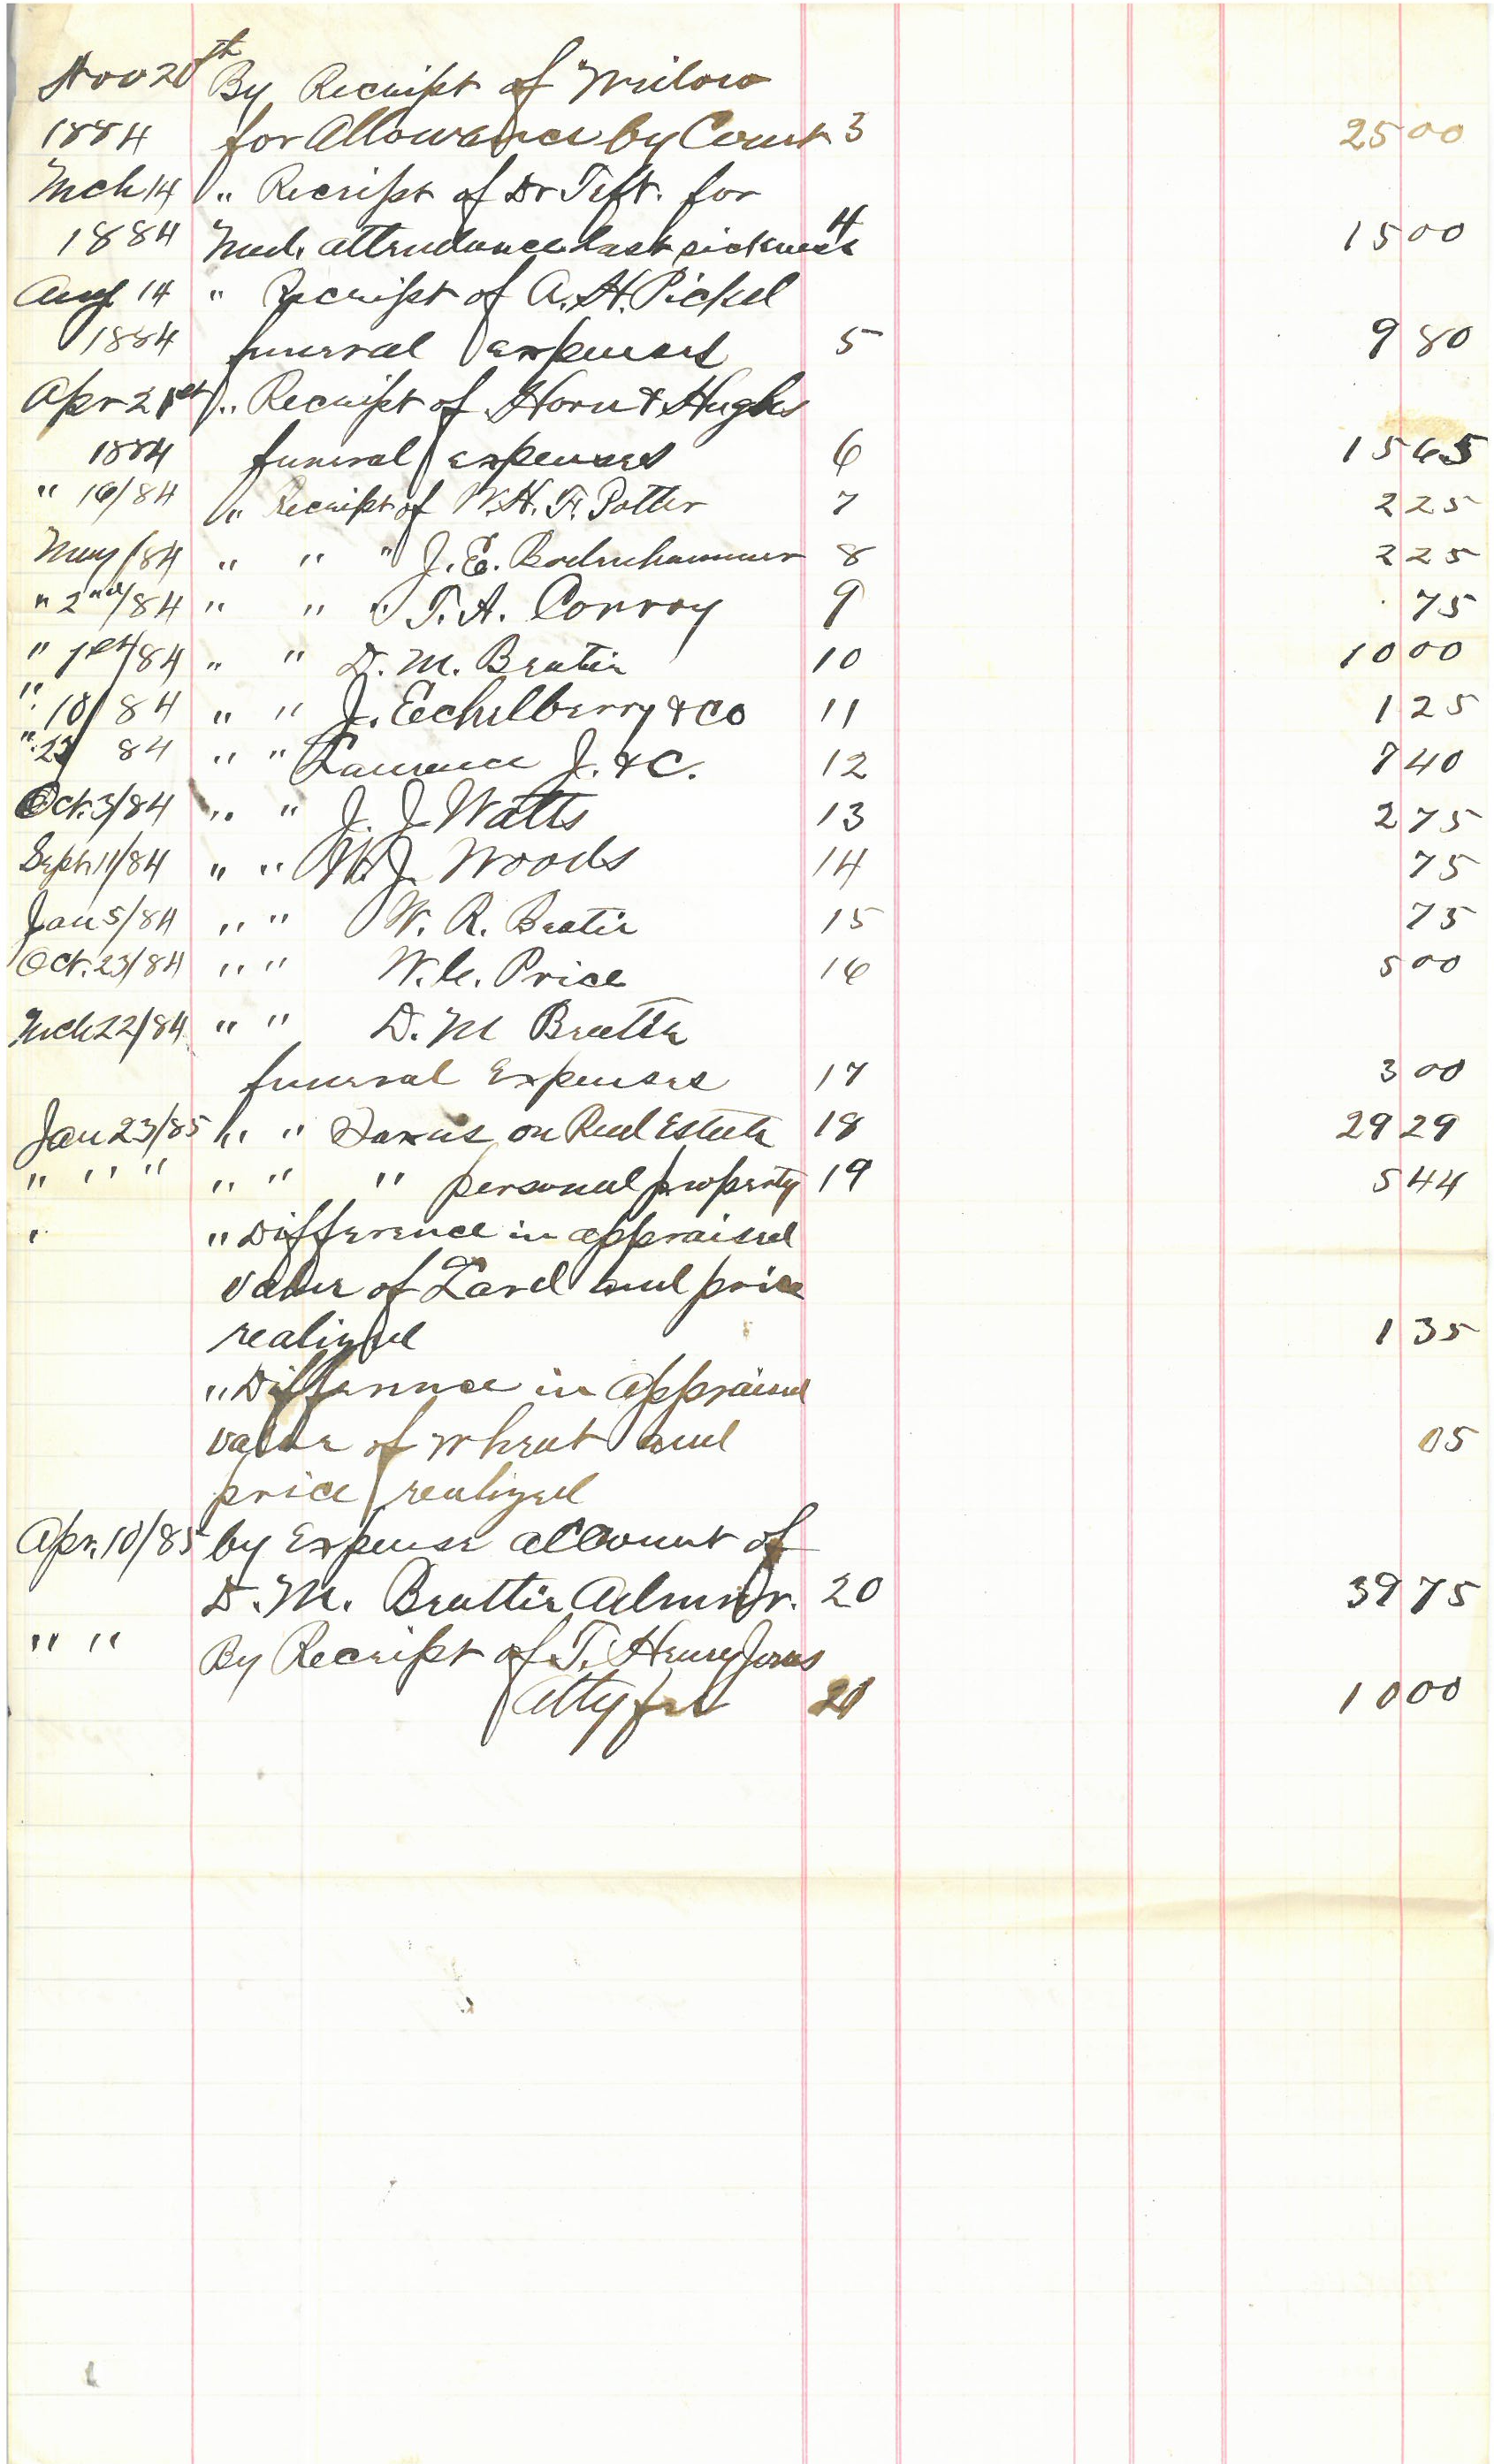 Nov 20th By Receipt of Widow
1884 for Allowance by Court 3 25 00
Mch 14 " Receipt of Dr Teft. for
1884 Med. attendance last sickness 4 15 00
Aug 14 " Receipt of A. H. Pickel
1884 funeral expenses 5 9 80
Apr 21st " Receipt of Horn & Hughs
1884 funeral expenses 6 15 65
" 16/84 " Receipt of W. H. F. Potter 7 2 25
May /84 " " " J. E. Bodenhammer 8 2 25
" 2nd/84 " " " T. A. Conroy 9 75
" 1st/84 " " D. M. Beatie 10 10 00
" 10/84 " " J. Echelberry & Co 11 1 25
" 23 84 " " Laurence J. & C. 12 7 40
Oct. 3/84 " " J. J. Watts 13 2 75
Sept 11/84 " " W. J. Woods 14 75
Jan 5/84 " " W. R. Beatie 15 75
Oct. 23/84 " " Price 16 5 00
Mch 22/84 " " D. M
funeral Expenses 17 3 00
Jan 23/85 " " Taxes on Real Estate 18 29 29
" " " " " " personal property 19 5 44
" " Difference in appraised
value of Land and price
realized 1 35
" Difference in Appraised
value of wheat and 05
price realized
Apr. 10/85 by Expense account of
D. M. Admr. 20 39 75
" " By Receipt of T. Henry Jones
Atty fee 21 10 00